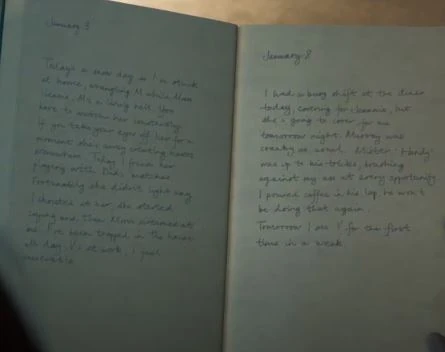 January 3
Today's a snow day so I'm stuck
at home, wrangling M while Mom
cleans. M's a living hell. You
have to watch her constantly
If you take your eyes off her for a
moment she's away creating havoc
somewhere. Today I found her
playing with Dad's matches
Fortunately she didn't light any
I shouted at her, she started
crying and then Mom screamed at
me. I've been trapped in the house
all day, Y's at work, I feel
miserable
January 8
I had a busy shift at the diner
today, covering for Jeannie, but
she's going to cover for me
tomorrow night. Murray was
cranky as usual. Mister 'Handy'
was up to his tricks, brushing
against my ass at every opportunity.
I poured coffee in his lap he won't
be doing that again.
Tomorrow I see Y for the first
time in a week